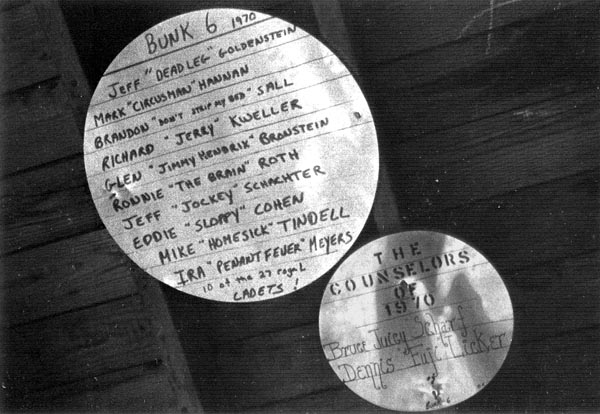 BUNK 6 1970
JEFF "DEADLEG" GOLDENSTEIN
MARK "CIRCUSMAN" HANNAN
BRANDON "DON'T STRIP MY BED" SALL
RICHARD "JERRY" KWELLER
GLEN "JIMMY HENDRIX" BRONSTEIN
RONNIE "THE BRAIN" ROTH
JEFF "JOCKEY" SCHACHTER
EDDIE "SLOPPY" COHEN
MIKE "HOMESICK" TINDELL
IRA "PENANT FEVER" MEYERS
10 of the 27 royal
CADETS!
THE
COUNSELORS
OF
1970
Bruce Juicy Scharf
Dennis Licker